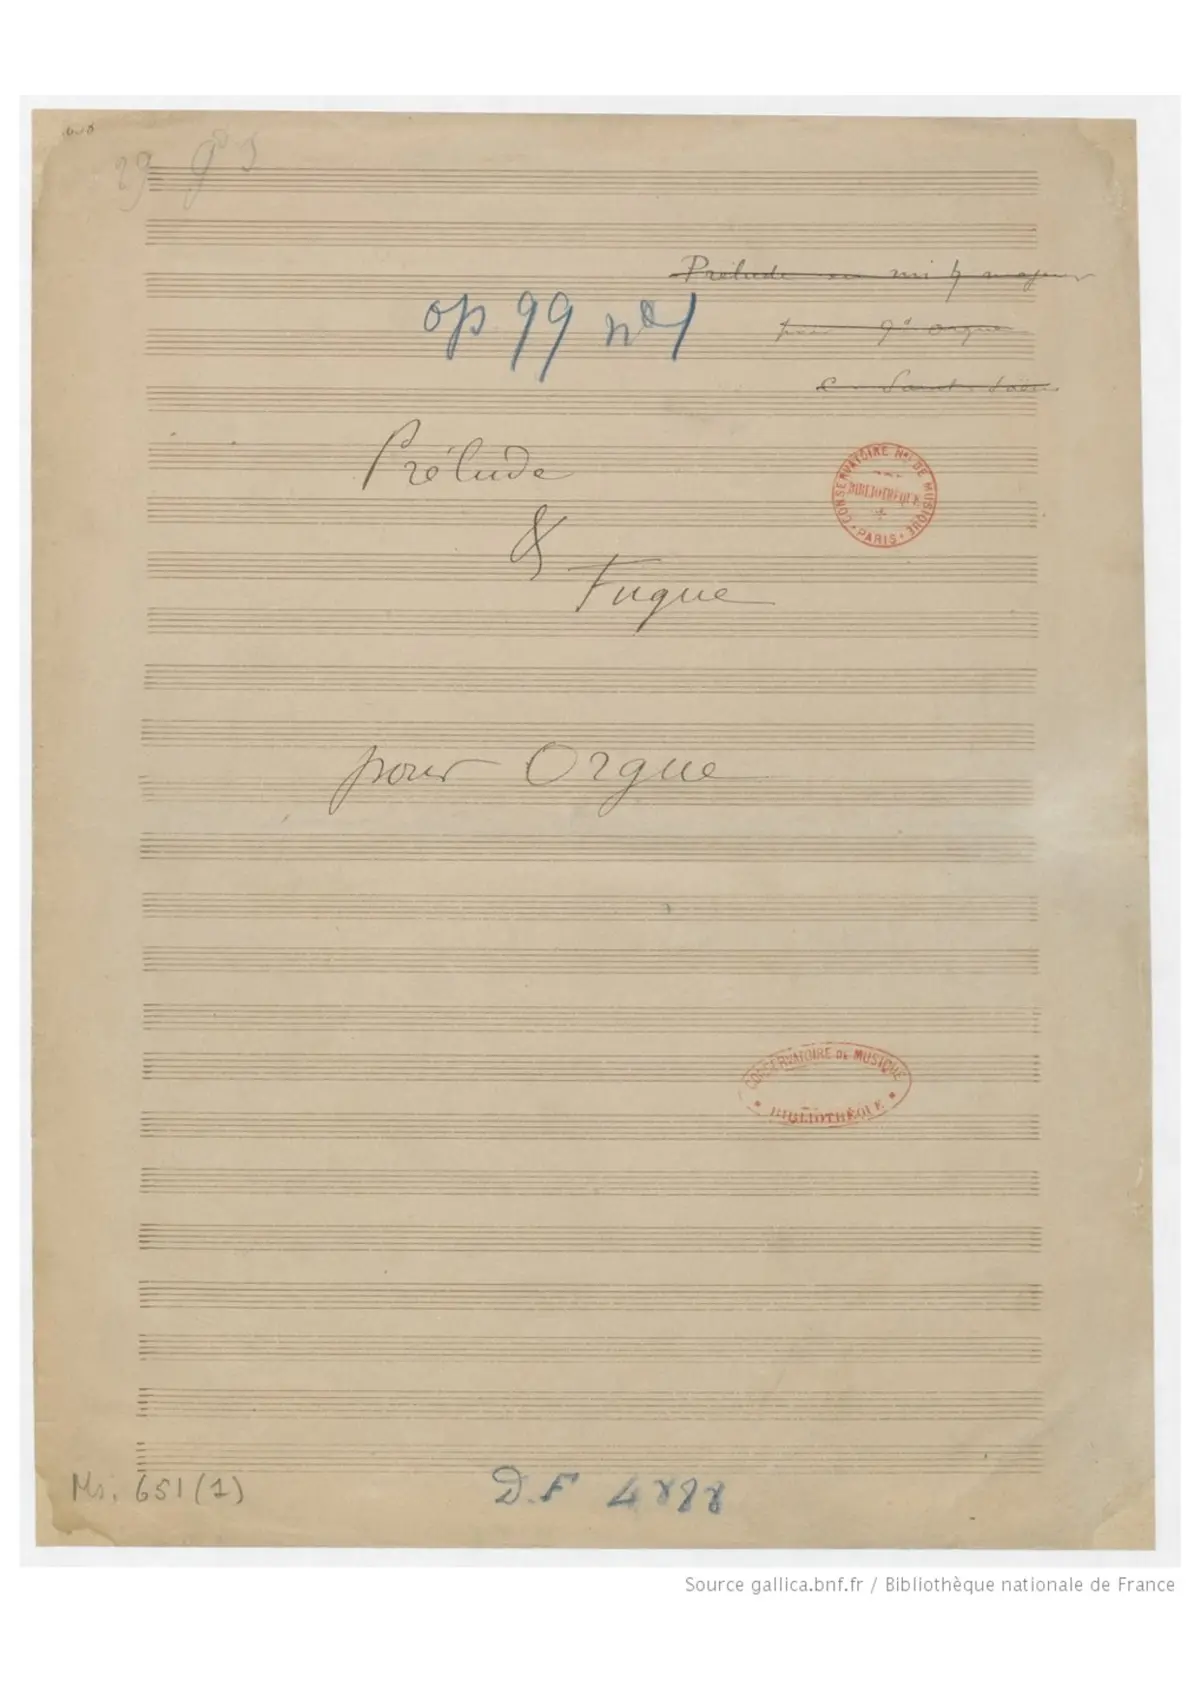 Prélude en mi ♮ majeur
op 99 no 1
pour gd orgue
C. Saint-Saëns
Prélude
&
Fugue
CONSERVATOIRE NAL DE MUSIQUE
BIBLIOTHÈQUE
PARIS
pour Orgue
CONSERVATOIRE DE MUSIQUE
BIBLIOTHÈQUE
Ms. 651 (1)
D.F 4888
Source gallica.bnf.fr / Bibliothèque nationale de France